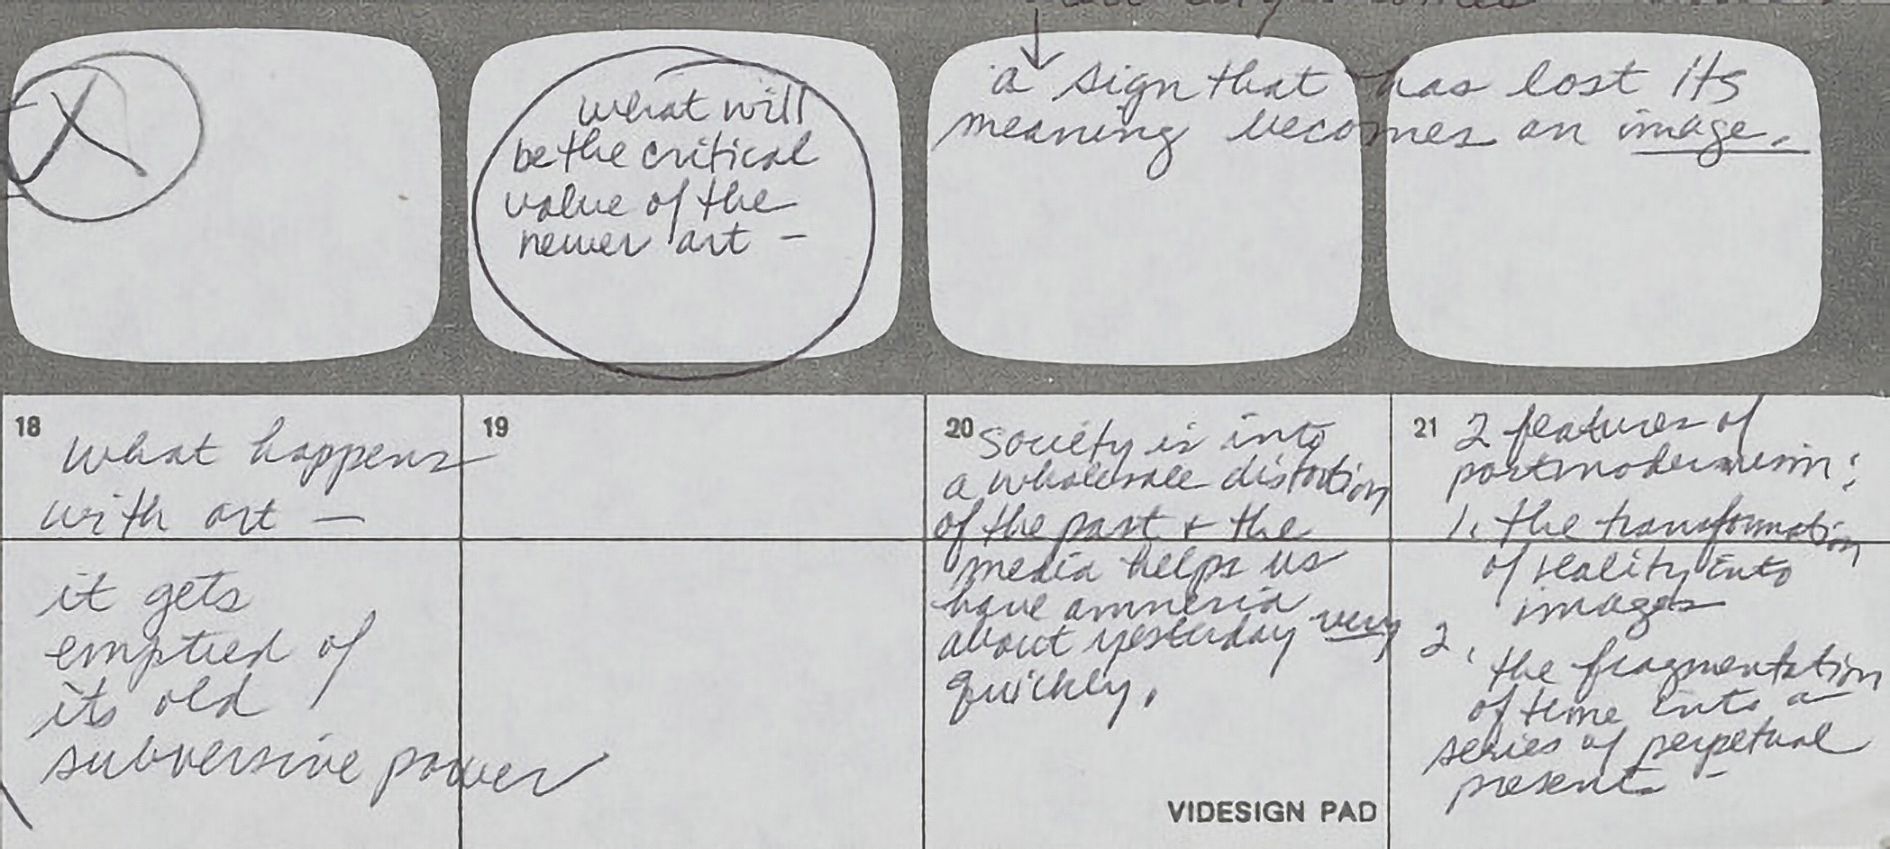 X
what will
be the critical
value of the
newer art —
a sign that has lost its
meaning becomes an image.
18
what happens
with art —
it gets
emptied of
its old
subversive power
19
20
Society is into
a wholesale distortion
of the past + the
media helps us
have amnesia
about yesterday very
quickly.
21
2 features of
postmodernism:
1. the transformation
of reality into
images
2. the fragmentation
of time into a
series of perpetual
present –
VIDESIGN PAD